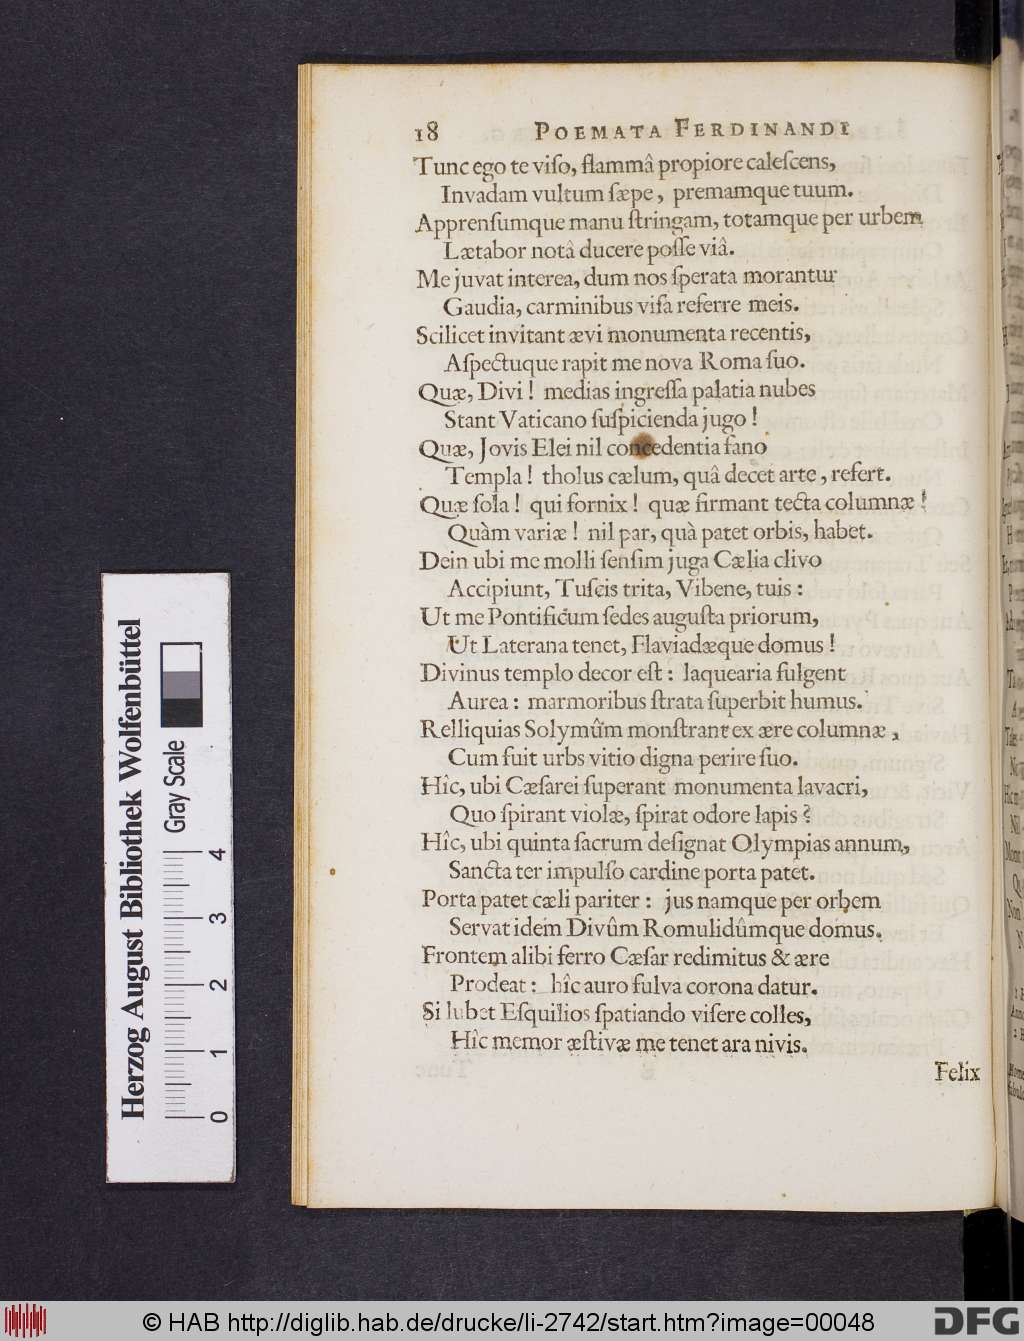 18 POEMATA FERDINANDI
Tunc ego te viſo, flammâ propiore caleſcens,
Invadam vultum ſæpe, premamque tuum.
Apprenſumque manu ſtringam, totamque per urbem
Lætabor notâ ducere poſſe viâ.
Me juvat interea, dum nos ſperata morantur
Gaudia, carminibus viſa referre meis.
Scilicet invitant ævi monumenta recentis,
Aſpectuque rapit me nova Roma ſuo.
Quæ, Divi! medias ingreſſa palatia nubes
Stant Vaticano ſuſpicienda jugo!
Quæ, Jovis Elei nil concedentia fano
Templa! tholus cælum, quâ decet arte, refert.
Quæ ſola! qui fornix! quæ firmant tecta columnæ!
Quàm variæ! nil par, quà patet orbis, habet.
Dein ubi me molli ſenſim juga Cælia clivo
Accipiunt, Tuſcis trita, Vibene, tuis:
Ut me Pontificum ſedes auguſta priorum,
Ut Laterana tenet, Flaviadæque domus!
Divinus templo decor eſt: laquearia fulgent
Aurea: marmoribus ſtrata ſuperbit humus.
Relliquias Solymûm monſtrant ex ære columnæ,
Cum fuit urbs vitio digna perire ſuo.
Hîc, ubi Cæſarei ſuperant monumenta lavacri,
Quo ſpirant violæ, ſpirat odore lapis?
Hîc, ubi quinta ſacrum deſignat Olympias annum,
Sancta ter impulſo cardine porta patet.
Porta patet cæli pariter: jus namque per orbem
Servat idem Divûm Romulidûmque domus.
Frontem alibi ferro Cæſar redimitus & ære
Prodeat: hîc auro fulva corona datur.
Si lubet Eſquilios ſpatiando viſere colles,
Hîc memor æſtivæ me tenet ara nivis.
Felix
Herzog August Bibliothek Wolfenbüttel
Gray Scale
0 1 2 3 4
© HAB http://diglib.hab.de/drucke/li-2742/start.htm?image=00048
DFG